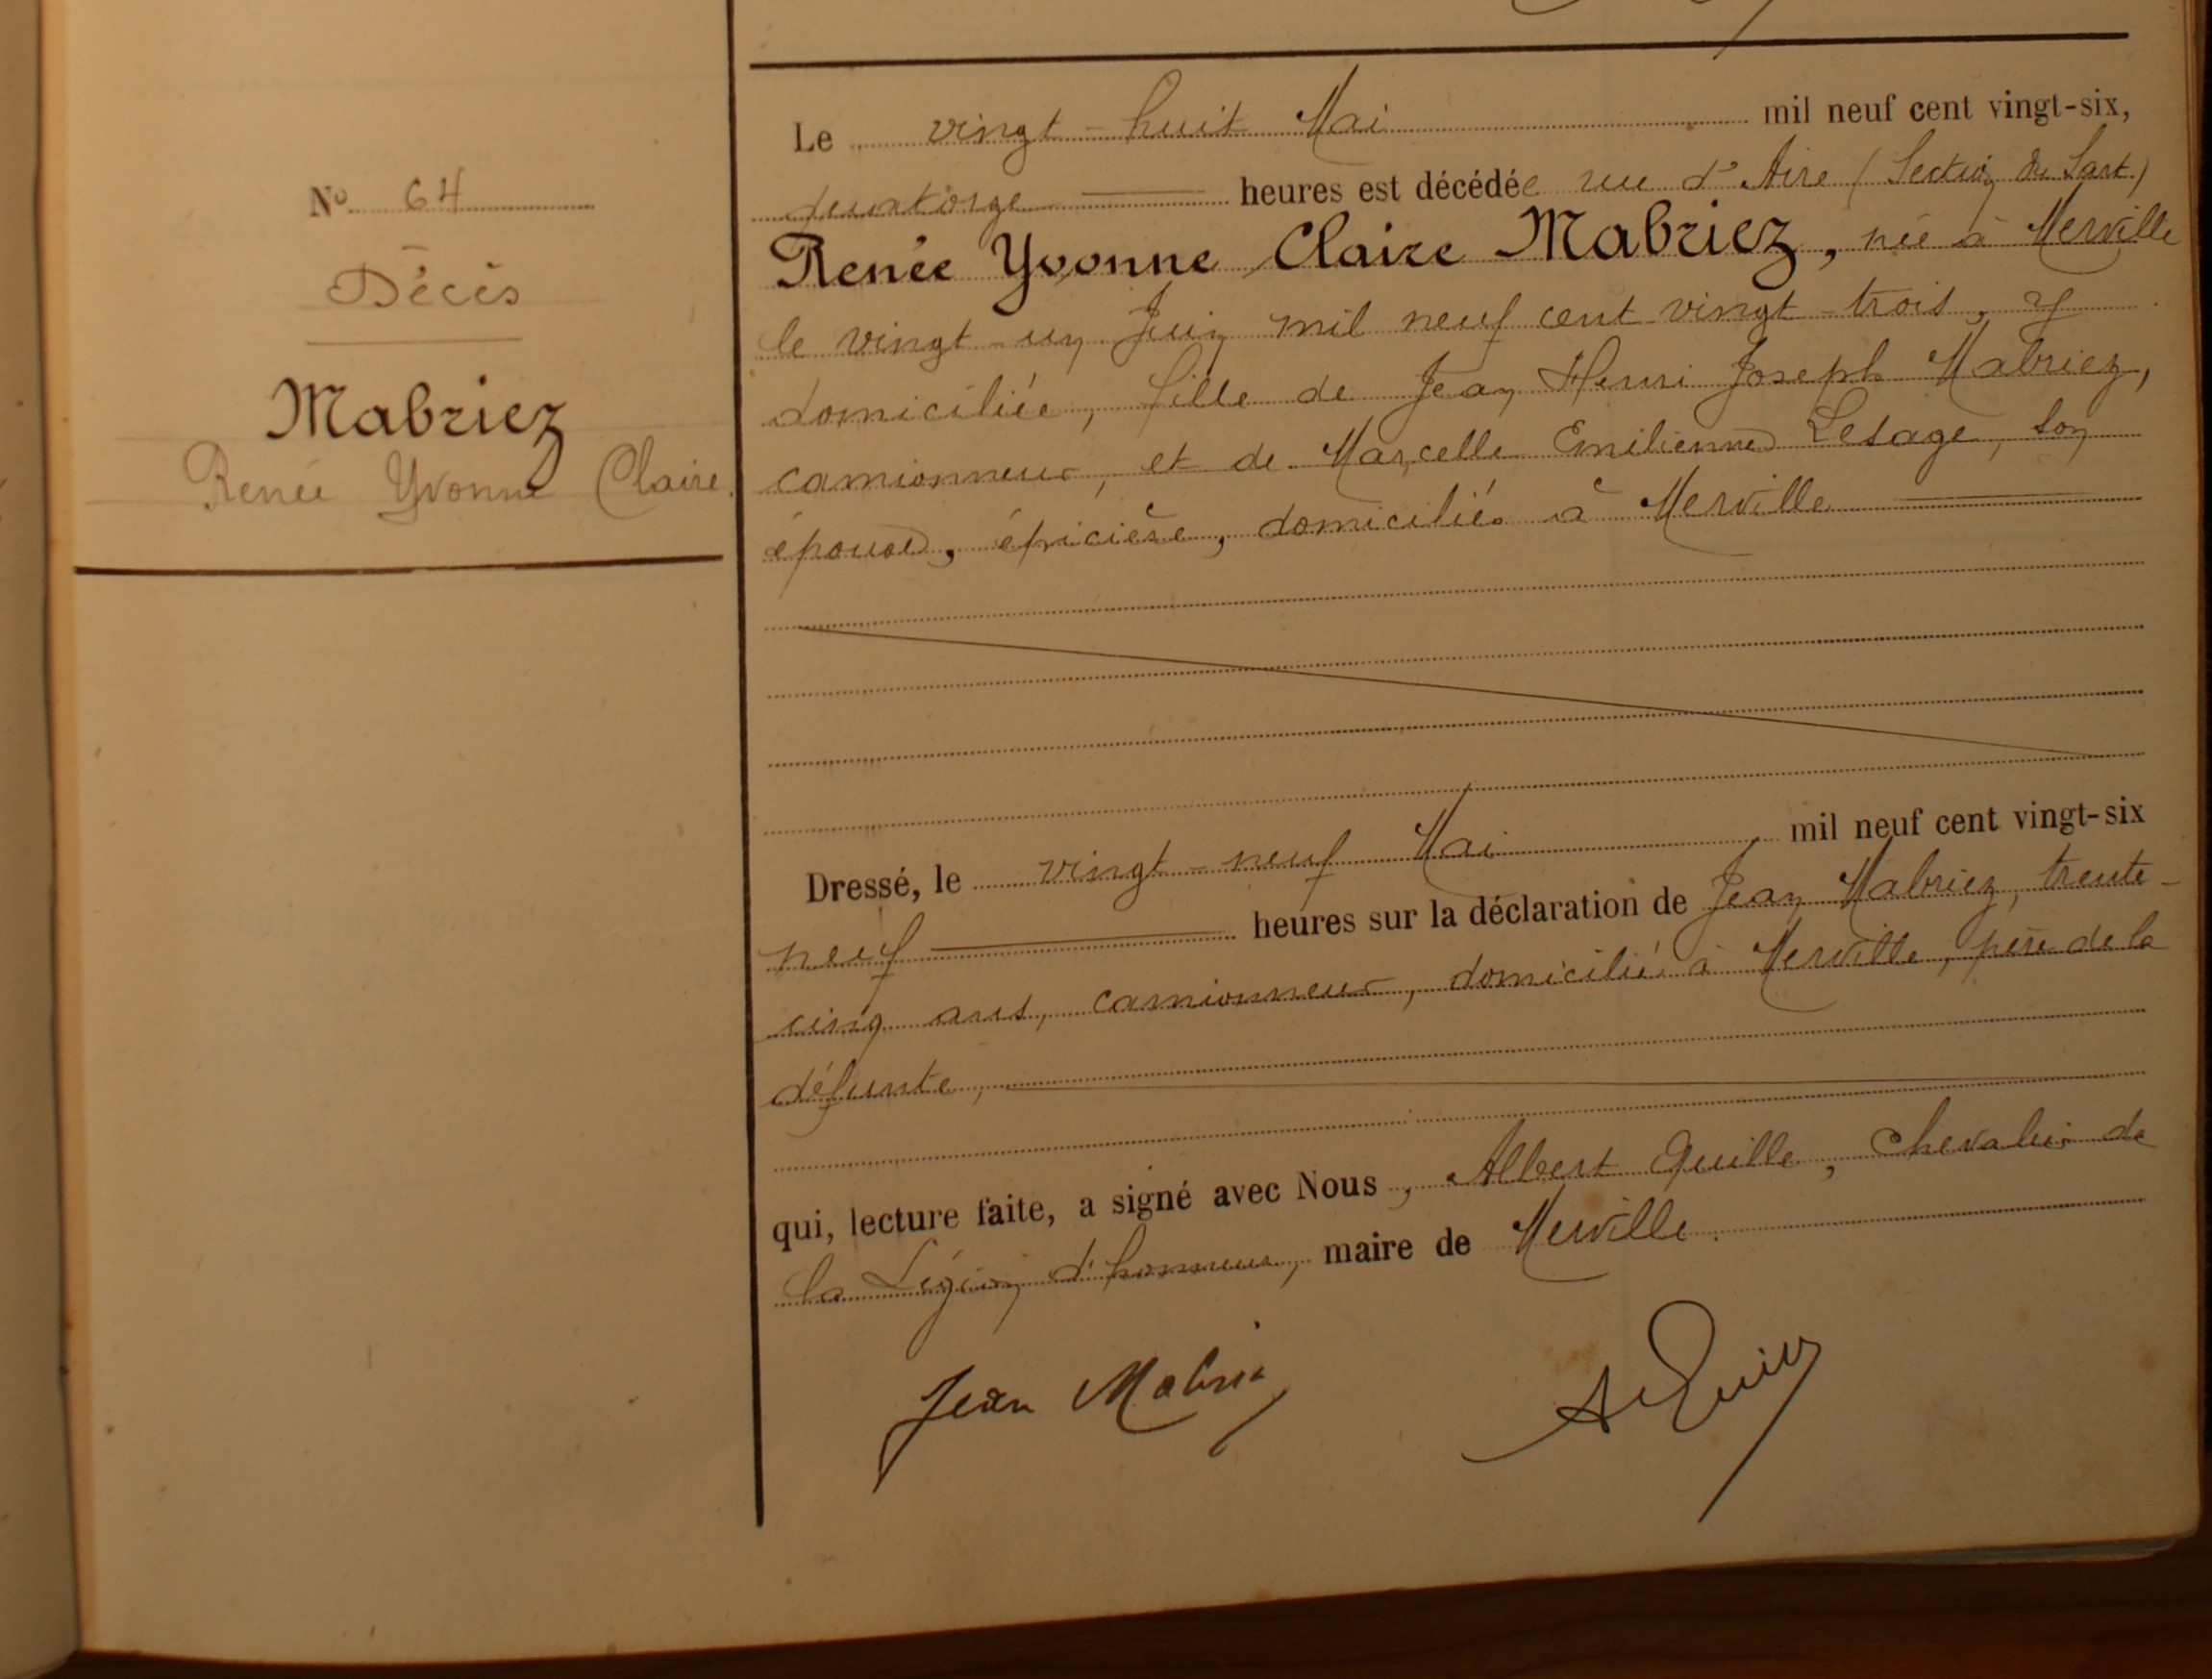 N° 64
Décès
Mabriez
Renée Yvonne Claire.
Le vingt-huit Mai mil neuf cent vingt-six,
quatorze heures est décédée rue d'Aire (Section du Sart)
Renée Yvonne Claire Mabriez, née à Merville
le vingt-un Juin mil neuf cent vingt-trois, y
domiciliée, fille de Jean Henri Joseph Mabriez,
camionneur, et de Marcelle Emilienne Lesage, son
épouse, épicière, domiciliés à Merville
Dressé, le vingt-neuf Mai mil neuf cent vingt-six
neuf heures sur la déclaration de Jean Mabriez, trente-
cinq ans, camionneur, domicilié à Merville, père de la
défunte,
qui, lecture faite, a signé avec Nous, Albert Quille, Chevalier de
la Légion d'honneur, maire de Merville.
Jean Mabriez
A Quille